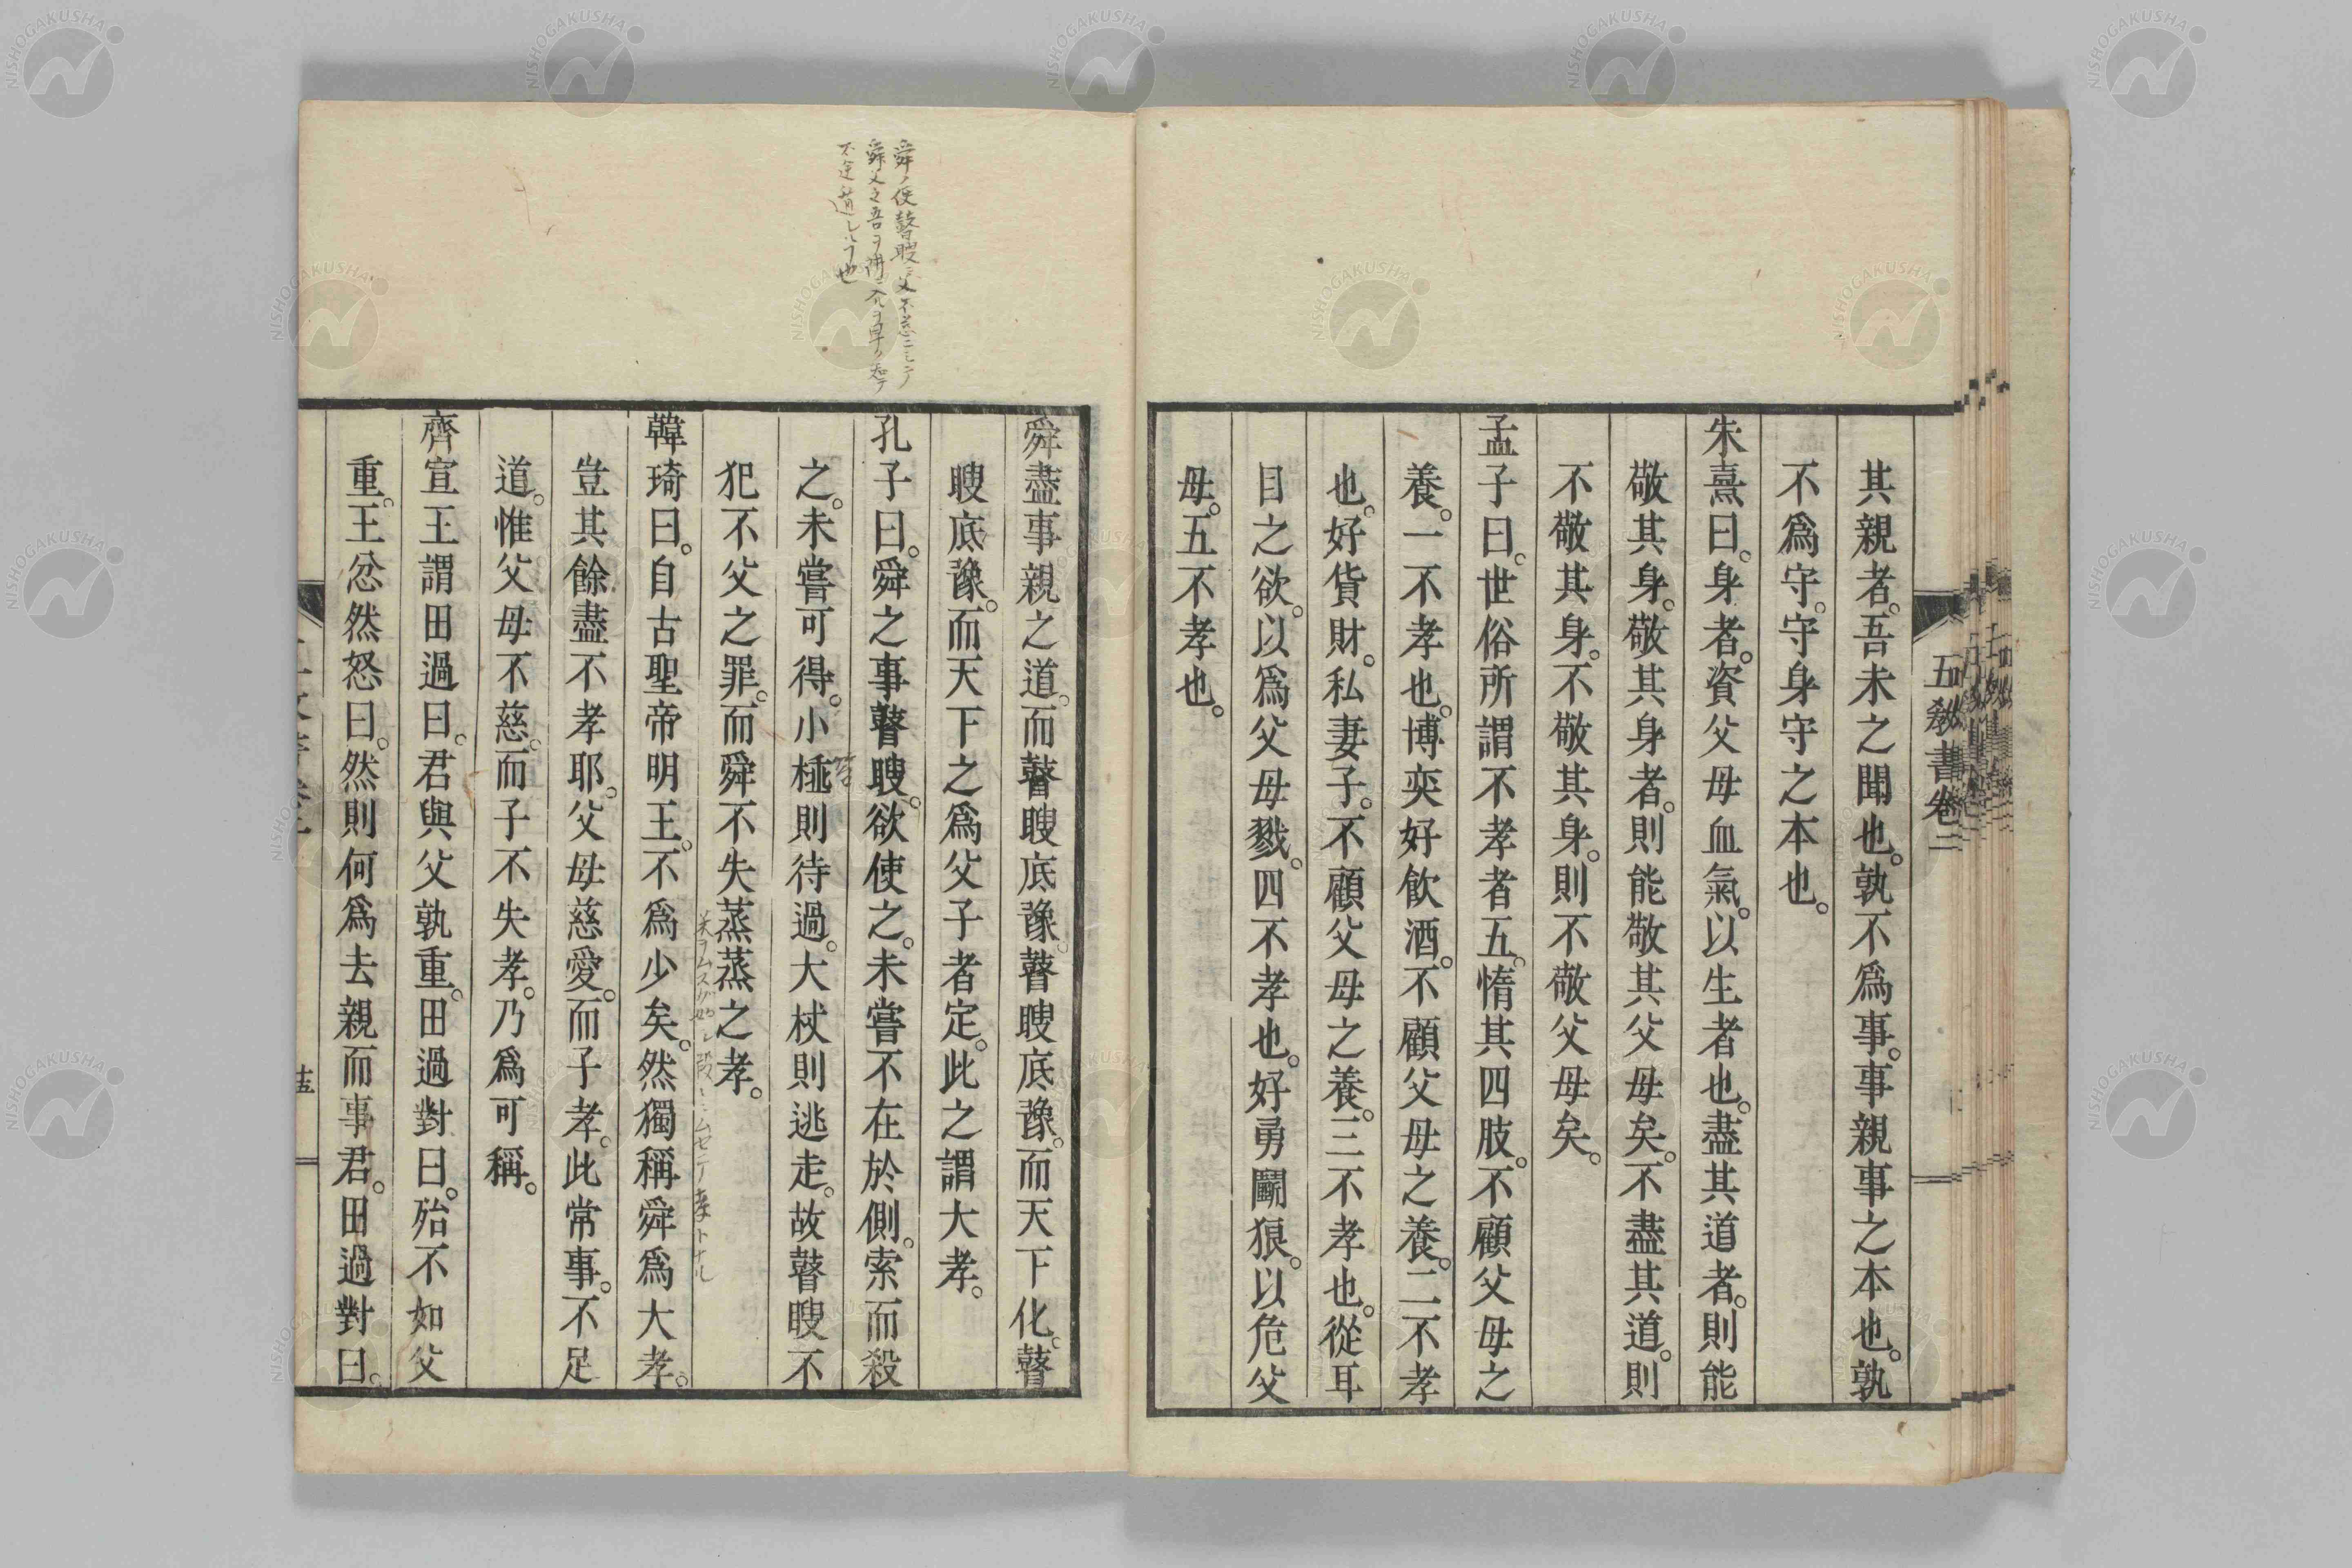 五敎書卷二
其親者。吾未之聞也。孰不爲事。事親事之本也。孰
不爲守。守身守之本也。
朱熹曰。身者。資父母血氣。以生者也。盡其道者。則能
敬其身。敬其身者。則能敬其父母矣。不盡其道。則
不敬其身。不敬其身。則不敬父母矣。
孟子曰。世俗所謂不孝者五。惰其四肢。不顧父母之
養。一不孝也。博奕好飲酒。不顧父母之養。二不孝
也。好貨財。私妻子。不顧父母之養。三不孝也。從耳
目之欲。以爲父母戮。四不孝也。好勇鬭狠。以危父
母。五不孝也。
舜盡事親之道。而瞽瞍底豫。瞽瞍底豫。而天下化。瞽
瞍底豫。而天下之爲父子者定。此之謂大孝。
孔子曰。舜之事瞽瞍。欲使之。未嘗不在於側。索而殺
之。未嘗可得。小棰則待過。大杖則逃走。故瞽瞍不
犯不父之罪。而舜不失蒸蒸之孝。
韓琦曰。自古聖帝明王。不爲少矣。然獨稱舜爲大孝。
豈其餘盡不孝耶。父母慈愛。而子孝。此常事。不足
道。惟父母不慈。而子不失孝。乃爲可稱。
齊宣王謂田過曰。君與父孰重。田過對曰。殆不如父
重。王忿然怒曰。然則何爲去親而事君。田過對曰。
十五
NISHOGAKUSHA